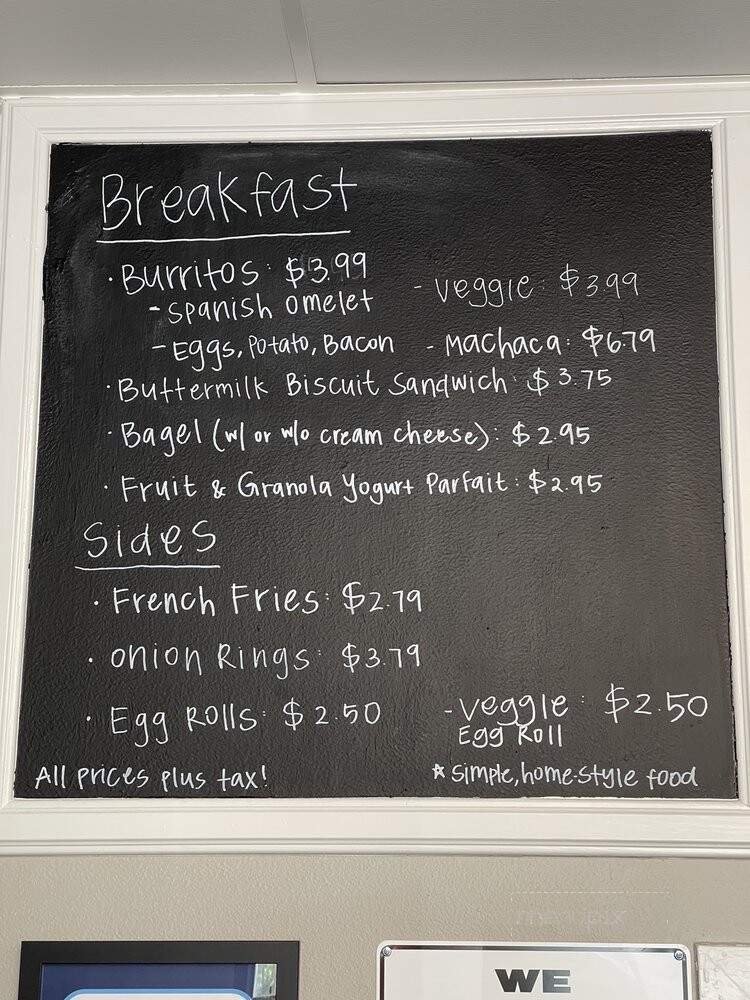 Breakfast
· Burritos: $3.99
- Spanish omelet - veggie: $3.99
- Eggs, Potato, Bacon - Machaca: $6.79
· Buttermilk Biscuit Sandwich: $3.75
· Bagel (w/ or w/o cream cheese): $2.95
· Fruit & Granola Yogurt Parfait: $2.95
Sides
· French Fries: $2.79
· Onion Rings: $3.79
· Egg Rolls: $2.50 - veggie: $2.50
Egg Roll
All prices plus tax! * simple, home-style food
WE